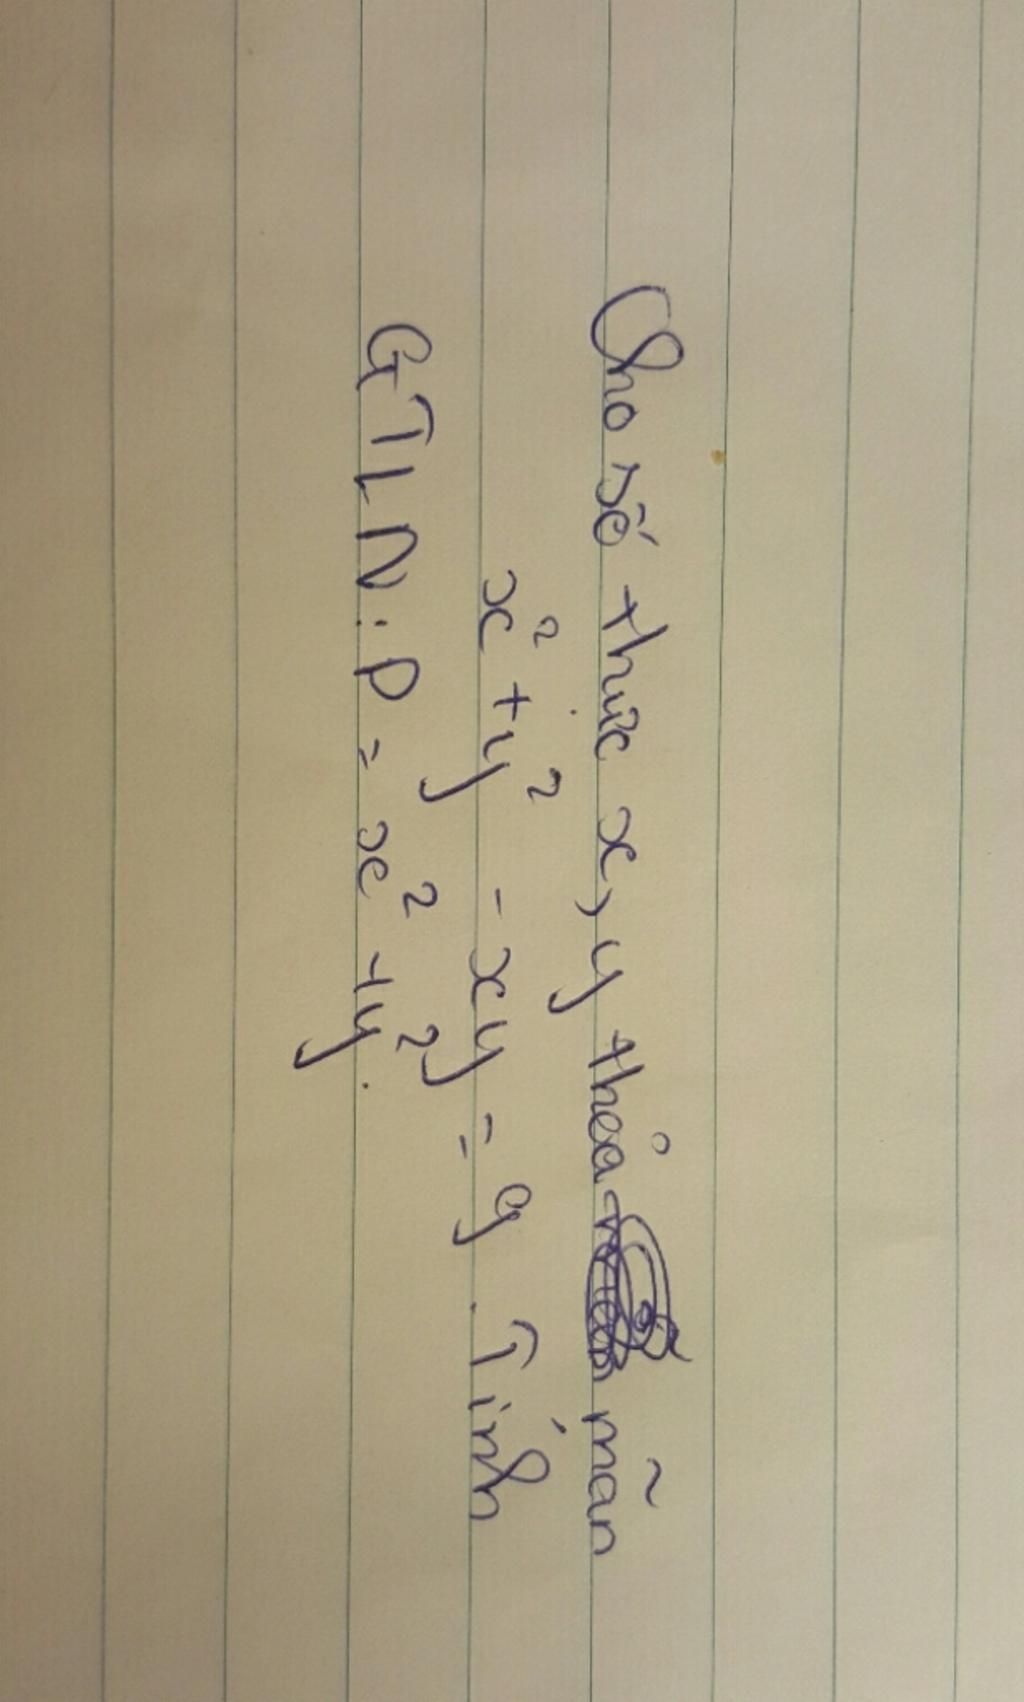 Cho số thực x, y thỏa mãn
x² + y² - xy = 9. Tính
GTLN: P = x² + y².